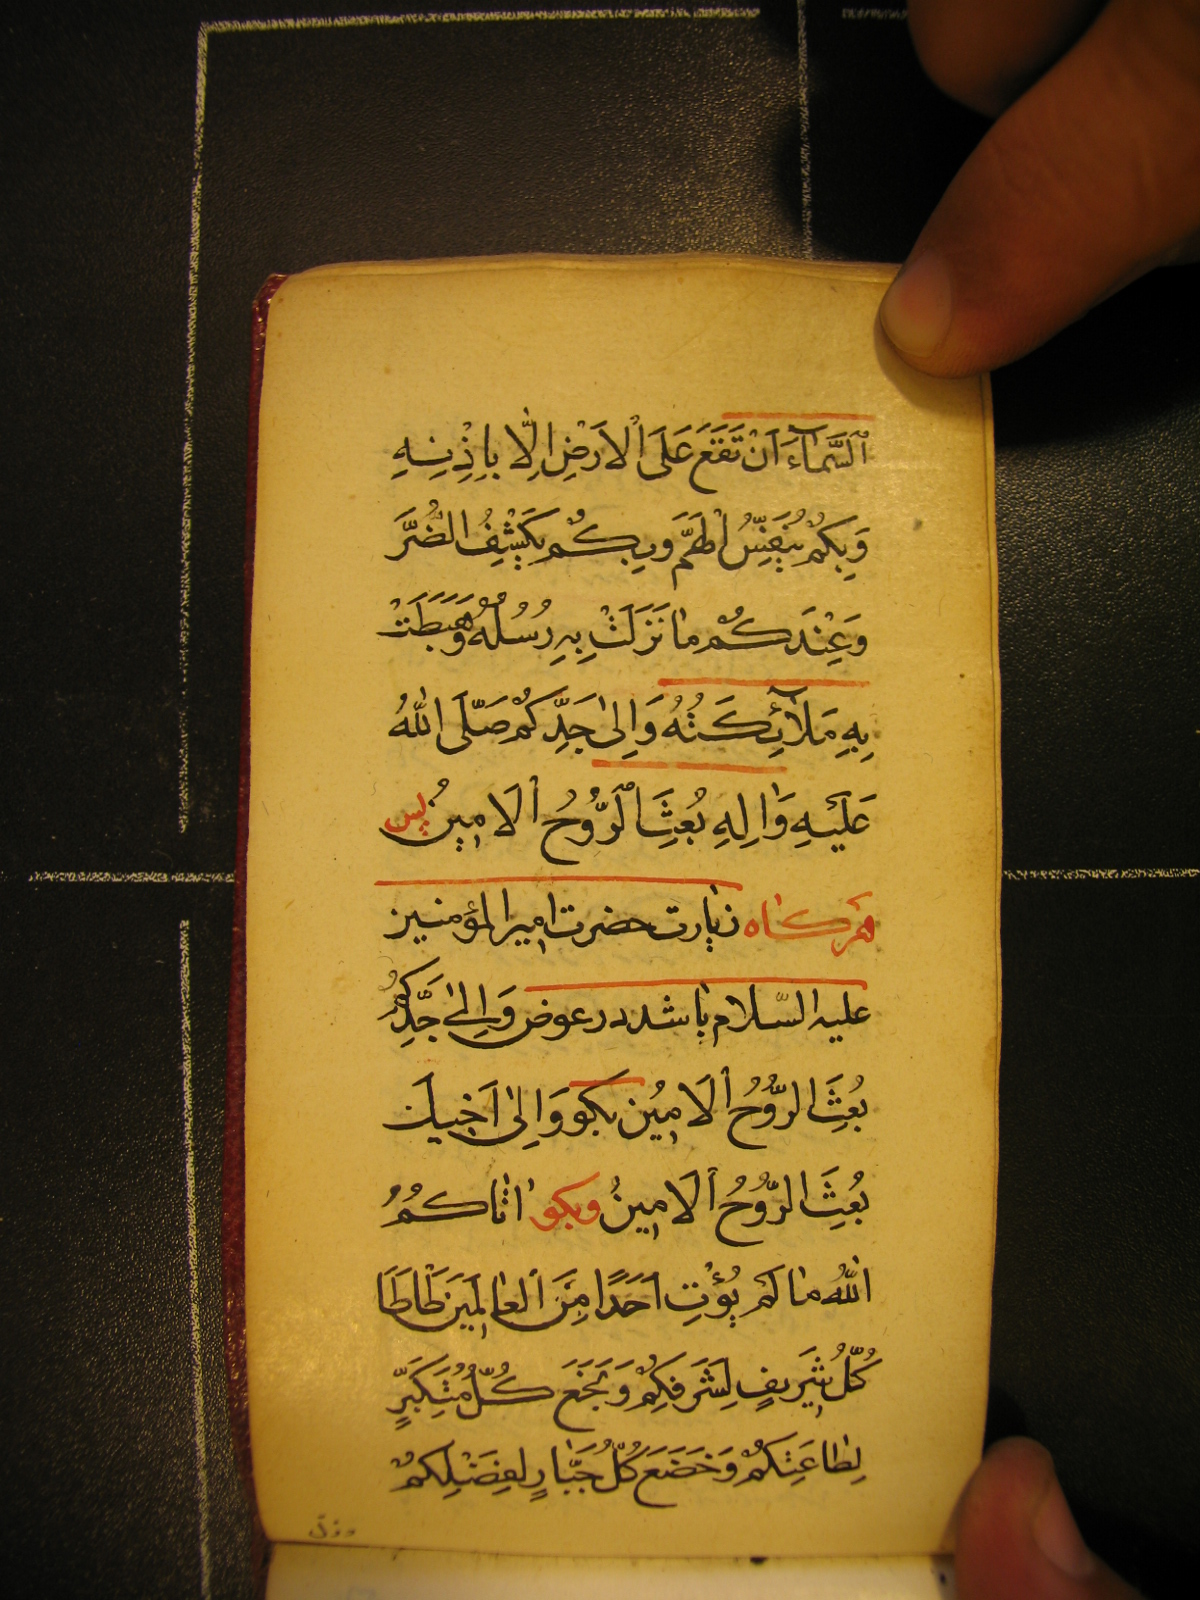 اَلسَّمآءَ اَنْ تَقَعَ عَلَى الْاَرْضِ اِلّا بِاِذْنِهِ
وَبِكُمْ يُنَفِّسُ الْهَمَّ وَبِكُمْ يَكْشِفُ الضُّرَّ
وَعِنْدَكُمْ مٰا نَزَلَتْ بِهِ رُسُلُهُ وَهَبَطَتْ
بِهِ مَلٰآئِكَتُهُ وَاِلىٰ جَدِّكُمْ صَلَّى اللّٰهُ
عَلَيْهِ وَاٰلِهِ بُعِثَ الرُّوحُ الْاَمينُ پس
هرگاه زيارت حضرت امير المؤمنين
عليه السّلام باشد در عوض وَاِلىٰ جَدِّكُمْ
بُعِثَ الرُّوحُ الْاَمينُ بگو وَاِلىٰ اَخيكَ
بُعِثَ الرُّوحُ الْاَمينُ وبگو اٰتٰاكُمُ
اللّٰهُ مٰا لَمْ يُؤْتِ اَحَدًا مِنَ الْعٰالَمينَ طَاْطَاَ
كُلُّ شَريفٍ لِشَرَفِكُمْ وَبَخَعَ كُلُّ مُتَكَبِّرٍ
لِطٰاعَتِكُمْ وَخَضَعَ كُلُّ جَبّٰارٍ لِفَضْلِكُمْ
وذلّ